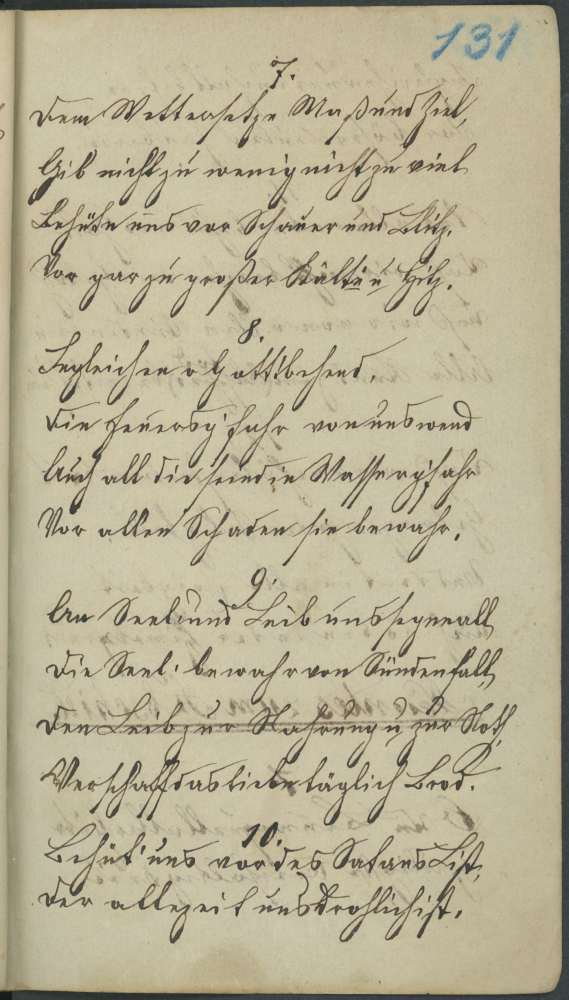 131
7.
Dem Wetter setze Maß und Ziel,
Gib nicht zu wenig nicht zu viel
Behüte uns vor Schauer und Blitz.
Vor gar zu großer Kälte u Hitz.
8.
Ingleichen o Gott! behend,
Die Feuersg'fahr von uns wend
Auch all die seind in Wasserg'fahr
Vor allen Schaden sie bewahr.
9.
An Seel und Leib uns segne all
Die Seel bewahr von Sündenfall,
Den Leib zur Nahrung u zur Noth,
Verschaff das liebe täglich Brod.
10.
Behüt' uns vor des Satans List,
Der allezeit uns drohlich ist.